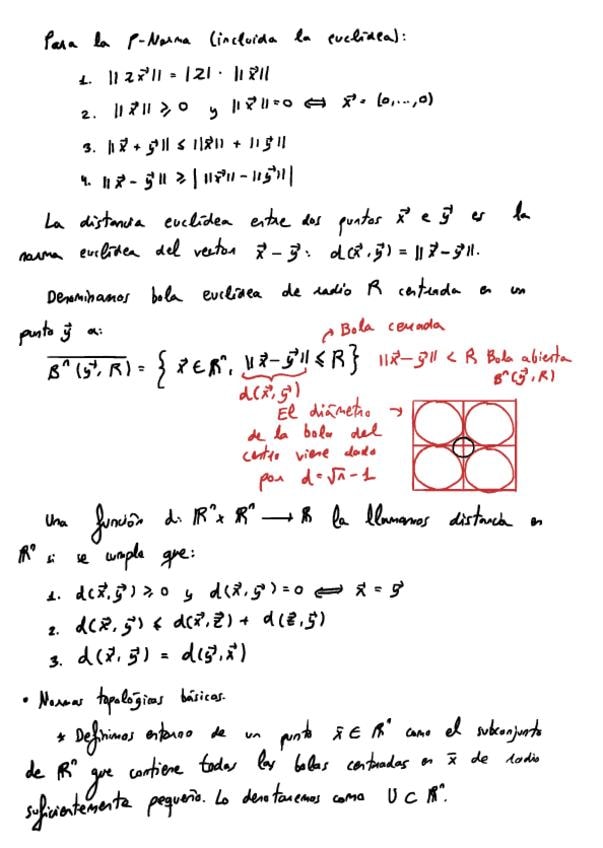 Para la P-Norma (incluida la euclídea):
1. ||z x⃗|| = |z| · ||x⃗||
2. ||x⃗|| ⩾ 0 y ||x⃗|| = 0 ⟺ x⃗ = (0,...,0)
3. ||x⃗ + y⃗|| ≤ ||x⃗|| + ||y⃗||
4. ||x⃗ - y⃗|| ⩾ | ||x⃗|| - ||y⃗|| |
La distancia euclídea entre dos puntos x⃗ e y⃗ es la
norma euclídea del vector x⃗ - y⃗: d(x⃗, y⃗) = ||x⃗ - y⃗||.
Denominamos bola euclídea de radio R centrada en un
punto y⃗ a:
Bola cerrada
B̅ⁿ(y⃗, R) = { x⃗ ∈ ℝⁿ, ||x⃗ - y⃗|| ≤ R } ||x⃗ - y⃗|| < R Bola abierta
d(x⃗, y⃗) Bⁿ(y⃗, R)
El diámetro →
de la bola del
centro viene dado
por d = √n - 1
Una función d: ℝⁿ x ℝⁿ ⟶ ℝ la llamamos distancia en
ℝⁿ si se cumple que:
1. d(x⃗, y⃗) ⩾ 0 y d(x⃗, y⃗) = 0 ⟺ x⃗ = y⃗
2. d(x⃗, y⃗) ≤ d(x⃗, z⃗) + d(z⃗, y⃗)
3. d(x⃗, y⃗) = d(y⃗, x⃗)
• Normas topológicas básicas.
* Definimos entorno de un punto x̄ ∈ ℝⁿ como el subconjunto
de ℝⁿ que contiene todas las bolas centradas en x̄ de radio
suficientemente pequeño. Lo denotaremos como U ⊂ ℝⁿ.